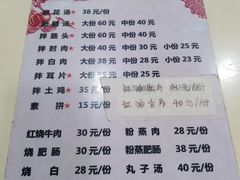 花汤★ 38元/份
肥肠汤★ 大份60元 中份40元
拌肠头★ 大份60元 中份40元
拌肘肉★ 大份35元 中份30元 小份25元
拌白肉 大份38元 中份30元 小份23元
拌耳片★ 大份35元
拌土鸡★ 35元/份
素拼★ 15元/份
红油 片 40元/份
红烧牛肉 30元/份
烧肥肠 30元/份
烧白 28元/份
粉蒸肉 28元/份
粉蒸肥肠 38元/份
丸子汤 40元/份